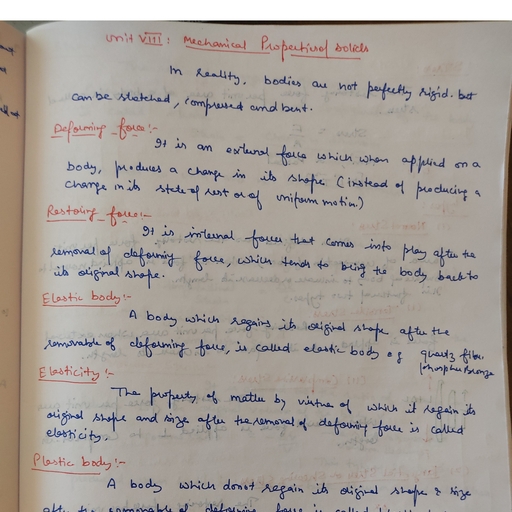 Unit VIII : Mechanical Properties of Solids
In reality, bodies are not perfectly rigid. but
can be stretched, compressed and bent.
Deforming force:-
It is an external force which when applied on a
body, produces a change in its shape (instead of producing a
change in its state of rest or of uniform motion.)
Restoring force:-
It is internal force that comes into play after the
removal of deforming force, which tends to bring the body back to
its original shape.
Elastic body:-
A body which regains its original shape after the
removable of deforming force, is called elastic body eg quartz fibre
phosphor Bronze
Elasticity:-
The property of matter by virtue of which it regain its
original shape and size after the removal of deforming force is called
elasticity.
Plastic body:-
A body which donot regain its original shape & size
after the removable of deforming force is called